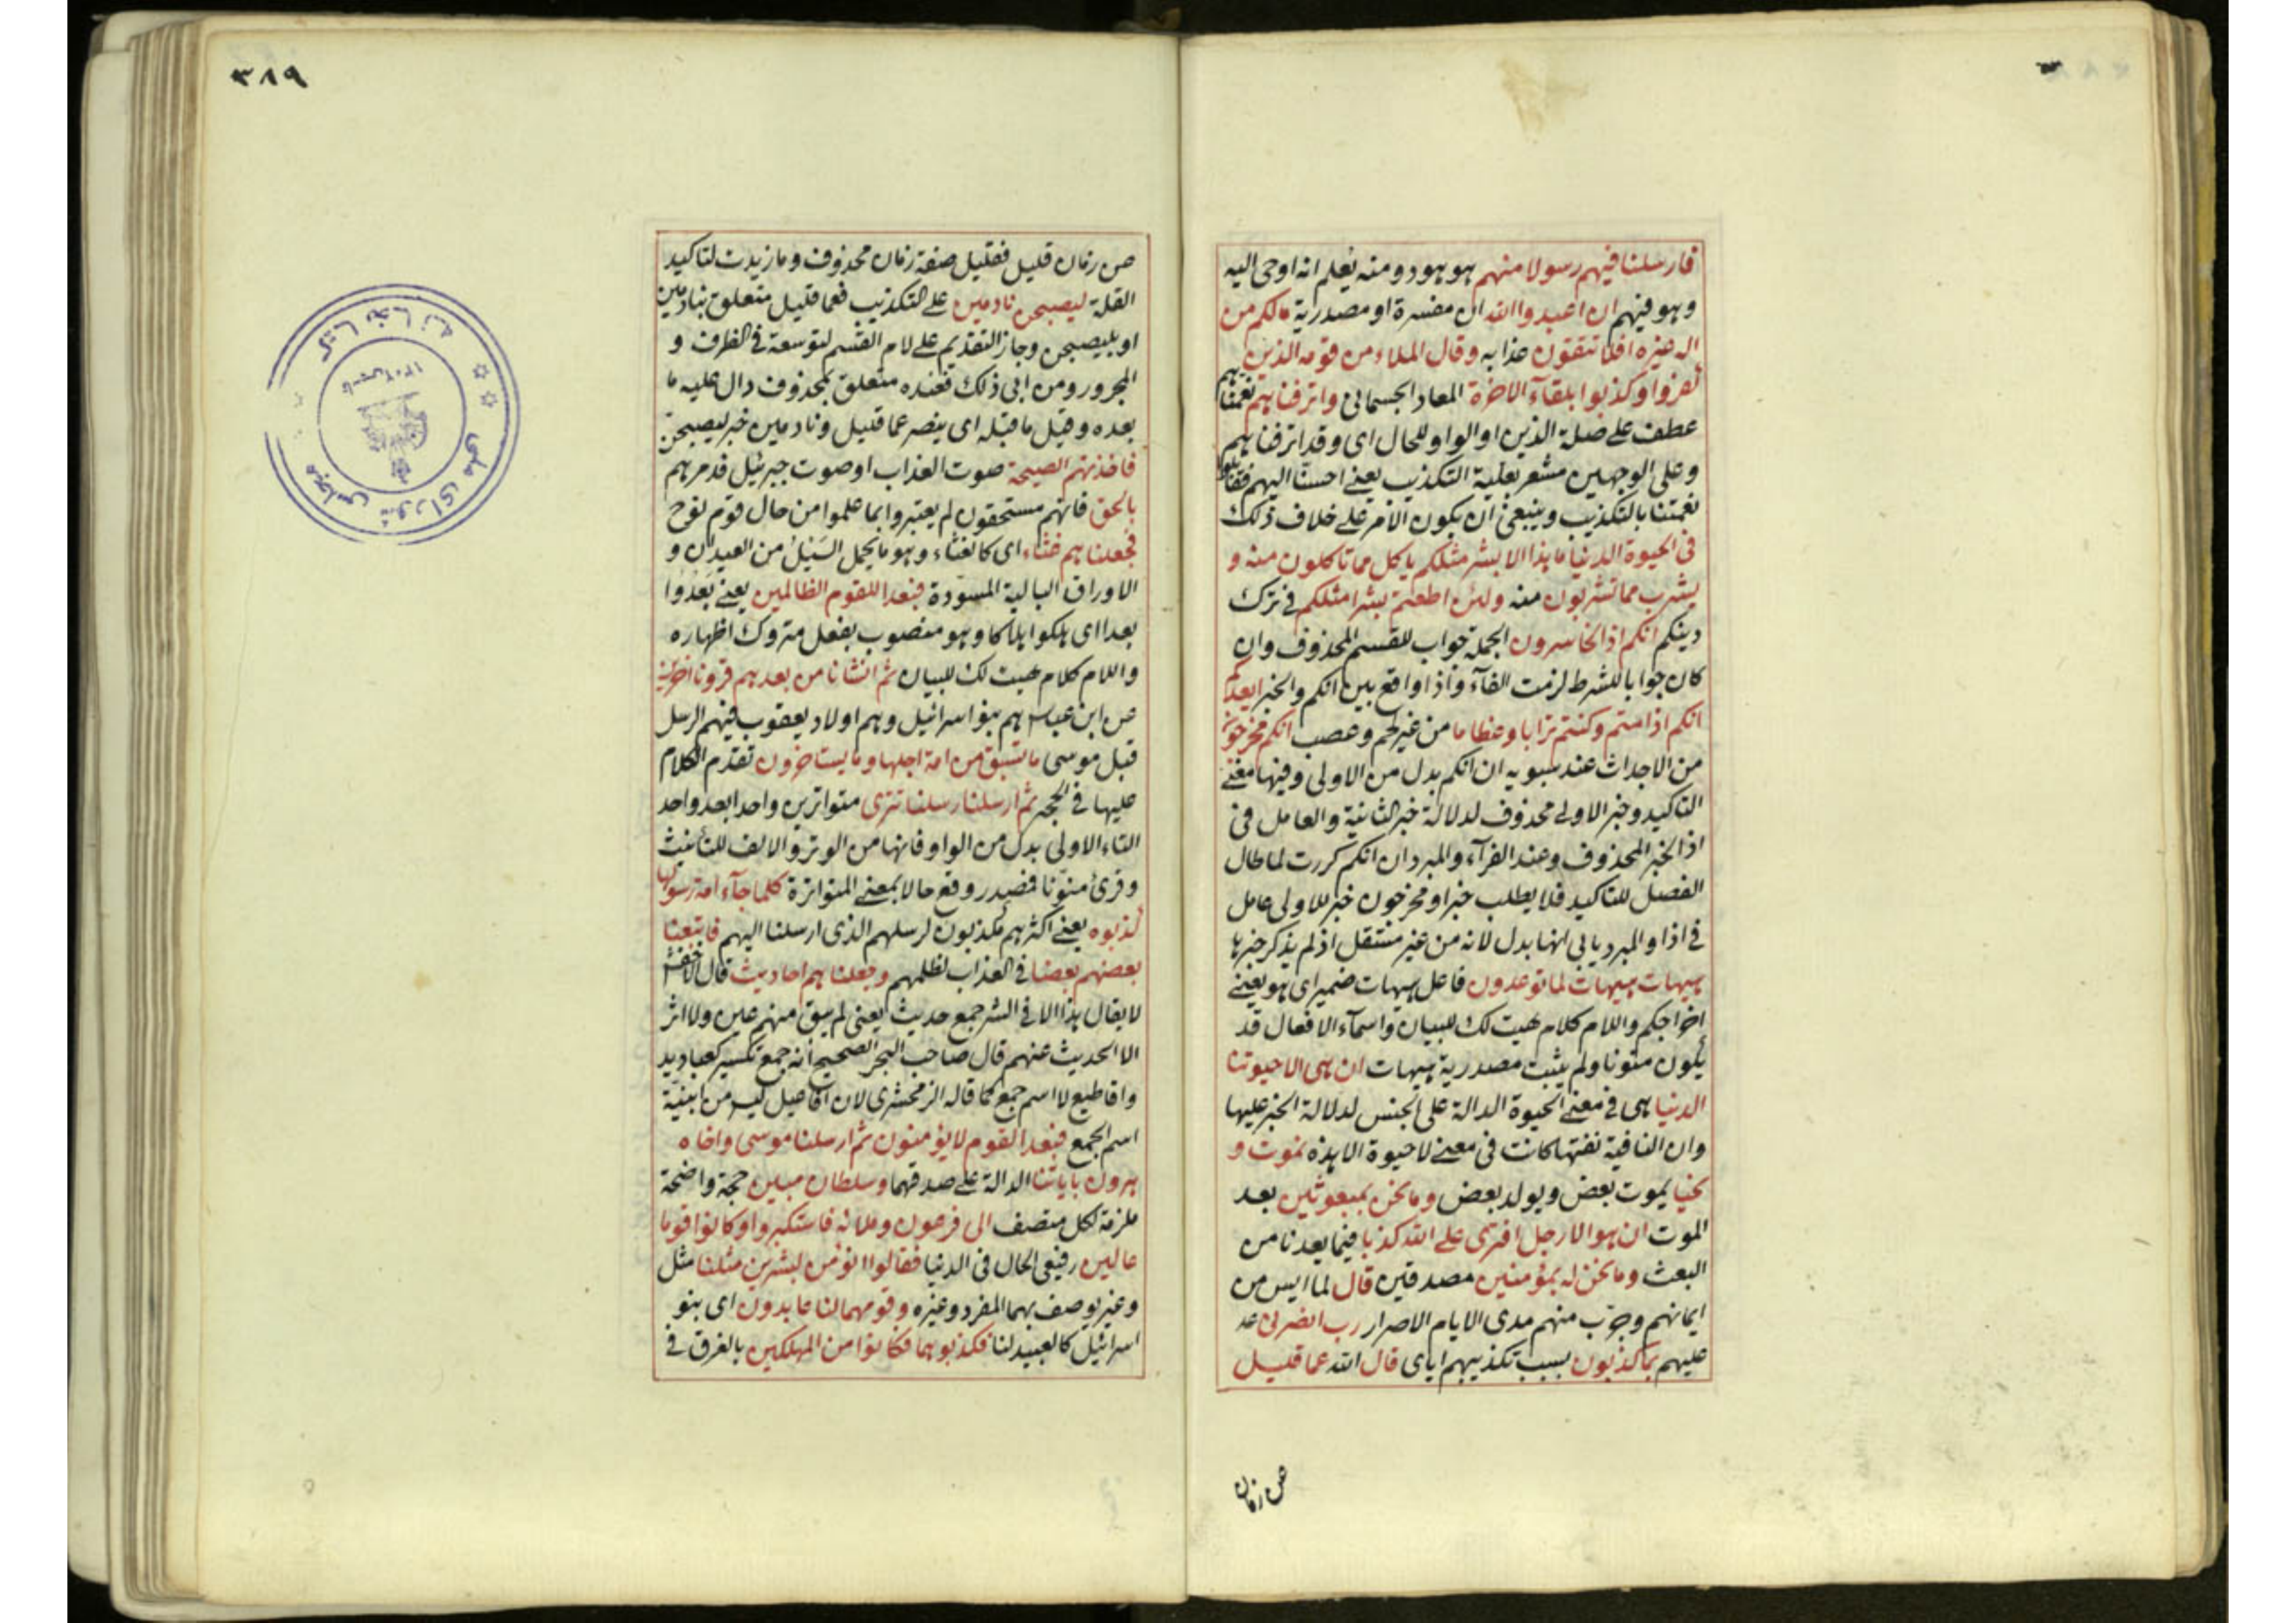 فارسلنا فيهم رسولا منهم هو هود ومنه يعلم انه اوحى اليه
وهو فيهم ان اعبدوا الله ان مفسرة او مصدرية مالكم من
اله غيره افلا تتقون عذابه وقال الملاء من قومه الذين
كفروا وكذبوا بلقآء الاخرة المعاد الجسمانى واترفناهم نعمناهم
عطف على صلة الذين او الواو للحال اى وقد اترفناهم
وعلى الوجهين مشعر بعلية التكذيب يعنى احسنّا اليهم فقابلوا
نعمتنا بالتكذيب وينبغى ان يكون الامر على خلاف ذلك
فى الحيوة الدنيا ما هذا الا بشر مثلكم ياكل مما تاكلون منه و
يشرب مما تشربون منه ولئن اطعتم بشرا مثلكم فى ترك
دينكم انكم اذا لخاسرون الجملة جواب للقسم المحذوف وان
كان جوابا للشرط لزمت الفآء واذا واقع بين انكم والخبر ايعدكم
انكم اذا متم وكنتم ترابا وعظاما من غير لحم وعصب انكم مخرجون
من الاجداث عند سيبويه ان انكم بدل من الاولى وفيها معنى
التاكيد وخبر الاولى محذوف لدلالة خبر الثانية والعامل فى
اذا الخبر المحذوف وعند الفرآء والمبرد ان انكم كررت لما طال
الفصل للتاكيد فلا يطلب خبرا ومخرجون خبر للاولى عامل
فى اذا والمبرد يابى انها بدل لانه من غير مستقل اذ لم يذكر خبرها
هيهات هيهات لما توعدون فاعل هيهات ضمير اى هو يعنى
اخراجكم واللام كلام هيت لك للبيان واسمآء الافعال قد
يكون منونا ولم يثبت مصدرية هيهات ان هى الا حيوتنا
الدنيا هى فى معنى الحيوة الدالة على الجنس لدلالة الخبر عليها
وان النافية نفتها كانت فى معنى لا حيوة الا هذه نموت و
نحيا يموت بعض ويولد بعض وما نحن بمبعوثين بعد
الموت ان هو الا رجل افترى على الله كذبا فيما يعدنا من
البعث وما نحن له بمؤمنين مصدقين قال لما ايس من
ايمانهم وجرّب منهم مدى الايام الاصرار رب انصرنى
عليهم بما كذبون بسبب تكذيبهم اياى قال الله عما قليل
عن زمان
٣٨٩
عن زمان قليل فقليل صفة زمان محذوف وما زيدت لتاكيد
القلة ليصبحن نادمين على التكذيب فعما قليل متعلق بنادمين
او بليصبحن وجاز التقديم على لام القسم لتوسعة فى الظرف و
المجرور ومن ابى ذلك فعنده متعلق بمحذوف دال عليه ما
بعده وقيل ما قبله اى ينصر عما قليل ونادمين خبر ليصبحن
فاخذتهم الصيحة صوت العذاب او صوت جبرئيل قد مر هم
بالحق فانهم مستحقون لم يعتبروا بما علموا من حال قوم نوح
فجعلناهم غثاء اى كالغثاء وهو ما يحمل السَيْلُ من العيدان و
الاوراق البالية المسوّدة فبعدا للقوم الظالمين يعنى بَعُدُوا
بعدا اى هلكوا هلاكا وهو منصوب بفعل متروك اظهاره
واللام كلام هيت لك للبيان ثم انشانا من بعدهم قرونا اخرين
عن ابن عباس هم بنو اسرائيل وهم اولاد يعقوب فيهم الرسل
قبل موسى ما تسبق من امة اجلها وما يستاخرون تقدم الكلام
عليها فى الحجر ثم ارسلنا رسلنا تترى متواترين واحدا بعد واحد
التاء الاولى بدل من الواو فانها من الوتر والالف للتأنيث
وقرئ منوّنا فمصدر وقع حالا بمعنى المتواترة كلما جآء امة رسولها
كذبوه يعنى اكثرهم مكذبون لرسلهم الذى ارسلنا اليهم فاتبعنا
بعضهم بعضا فى العذاب لظلمهم وجعلناهم احاديث قال الاخفش
لا يقال هذا الا فى الشر جمع حديث يعنى لم يبق منهم عين ولا اثر
الا الحديث عنهم قال صاحب البحر الصحيح انه جمع تكسير كعباديد
واقاطيع لا اسم جمع كما قاله الزمخشرى لان افاعيل ليس من ابنية
اسم الجمع فبعدا لقوم لا يؤمنون ثم ارسلنا موسى واخاه
هرون باياتنا الدالة على صدقهما وسلطان مبين حجة واضحة
ملزمة لكل منصف الى فرعون وملائه فاستكبروا وكانوا قوما
عالين رفيعى الحال فى الدنيا فقالوا انؤمن لبشرين مثلنا مثل
وغير يوصف بهما المفرد وغيره وقومهما لنا عابدون اى بنو
اسرائيل كالعبيد لنا فكذبوهما فكانوا من المهلكين بالغرق فى
كتابخانه
مجلس شوراى ملى